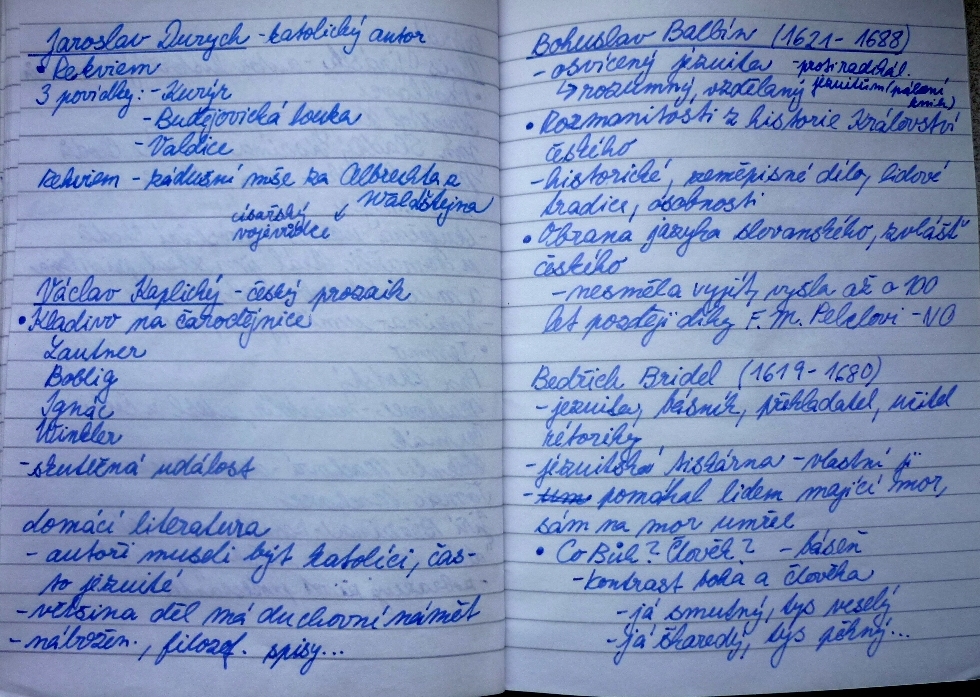 Jaroslav Durych - katolický autor
• Rekviem
3 povídky: - Kurýr
- Budějovická louka
- Valdice
Rekviem - zádušní mše za Albrechta z
Waldštejna
císařský
vojevůdce
Václav Kaplický - český prozaik
• Kladivo na čarodějnice
Lautner
Boblig
Ignác
Winkler
- skutečná událost
domácí literatura
- autoři museli být katolíci, čas-
to jezuité
- většina děl má duchovní námět
- nábožen., filozof. spisy...
Bohuslav Balbín (1621 - 1688)
- osvícený jezuita - proti radikál.
↳ rozumný, vzdělaný jezuitům (pálení
knih)
• Rozmanitosti z historie Království
českého
- historické, zeměpisné dílo, lidové
tradice, osobnosti
• Obrana jazyka slovanského, zvlášť
českého
- nesměla vyjít, vyšla až o 100
let později díky F. M. Pelclovi - NO
Bedřich Bridel (1619 - 1680)
- jezuita, básník, překladatel, učitel
rétoriky
- jezuitská tiskárna - vlastní ji
- pomáhal lidem mající mor,
sám na mor umřel
• Co Bůh? Člověk? - báseň
- kontrast boha a člověka
- já smutný, tys veselý
- já škaredý, tys pěkný...